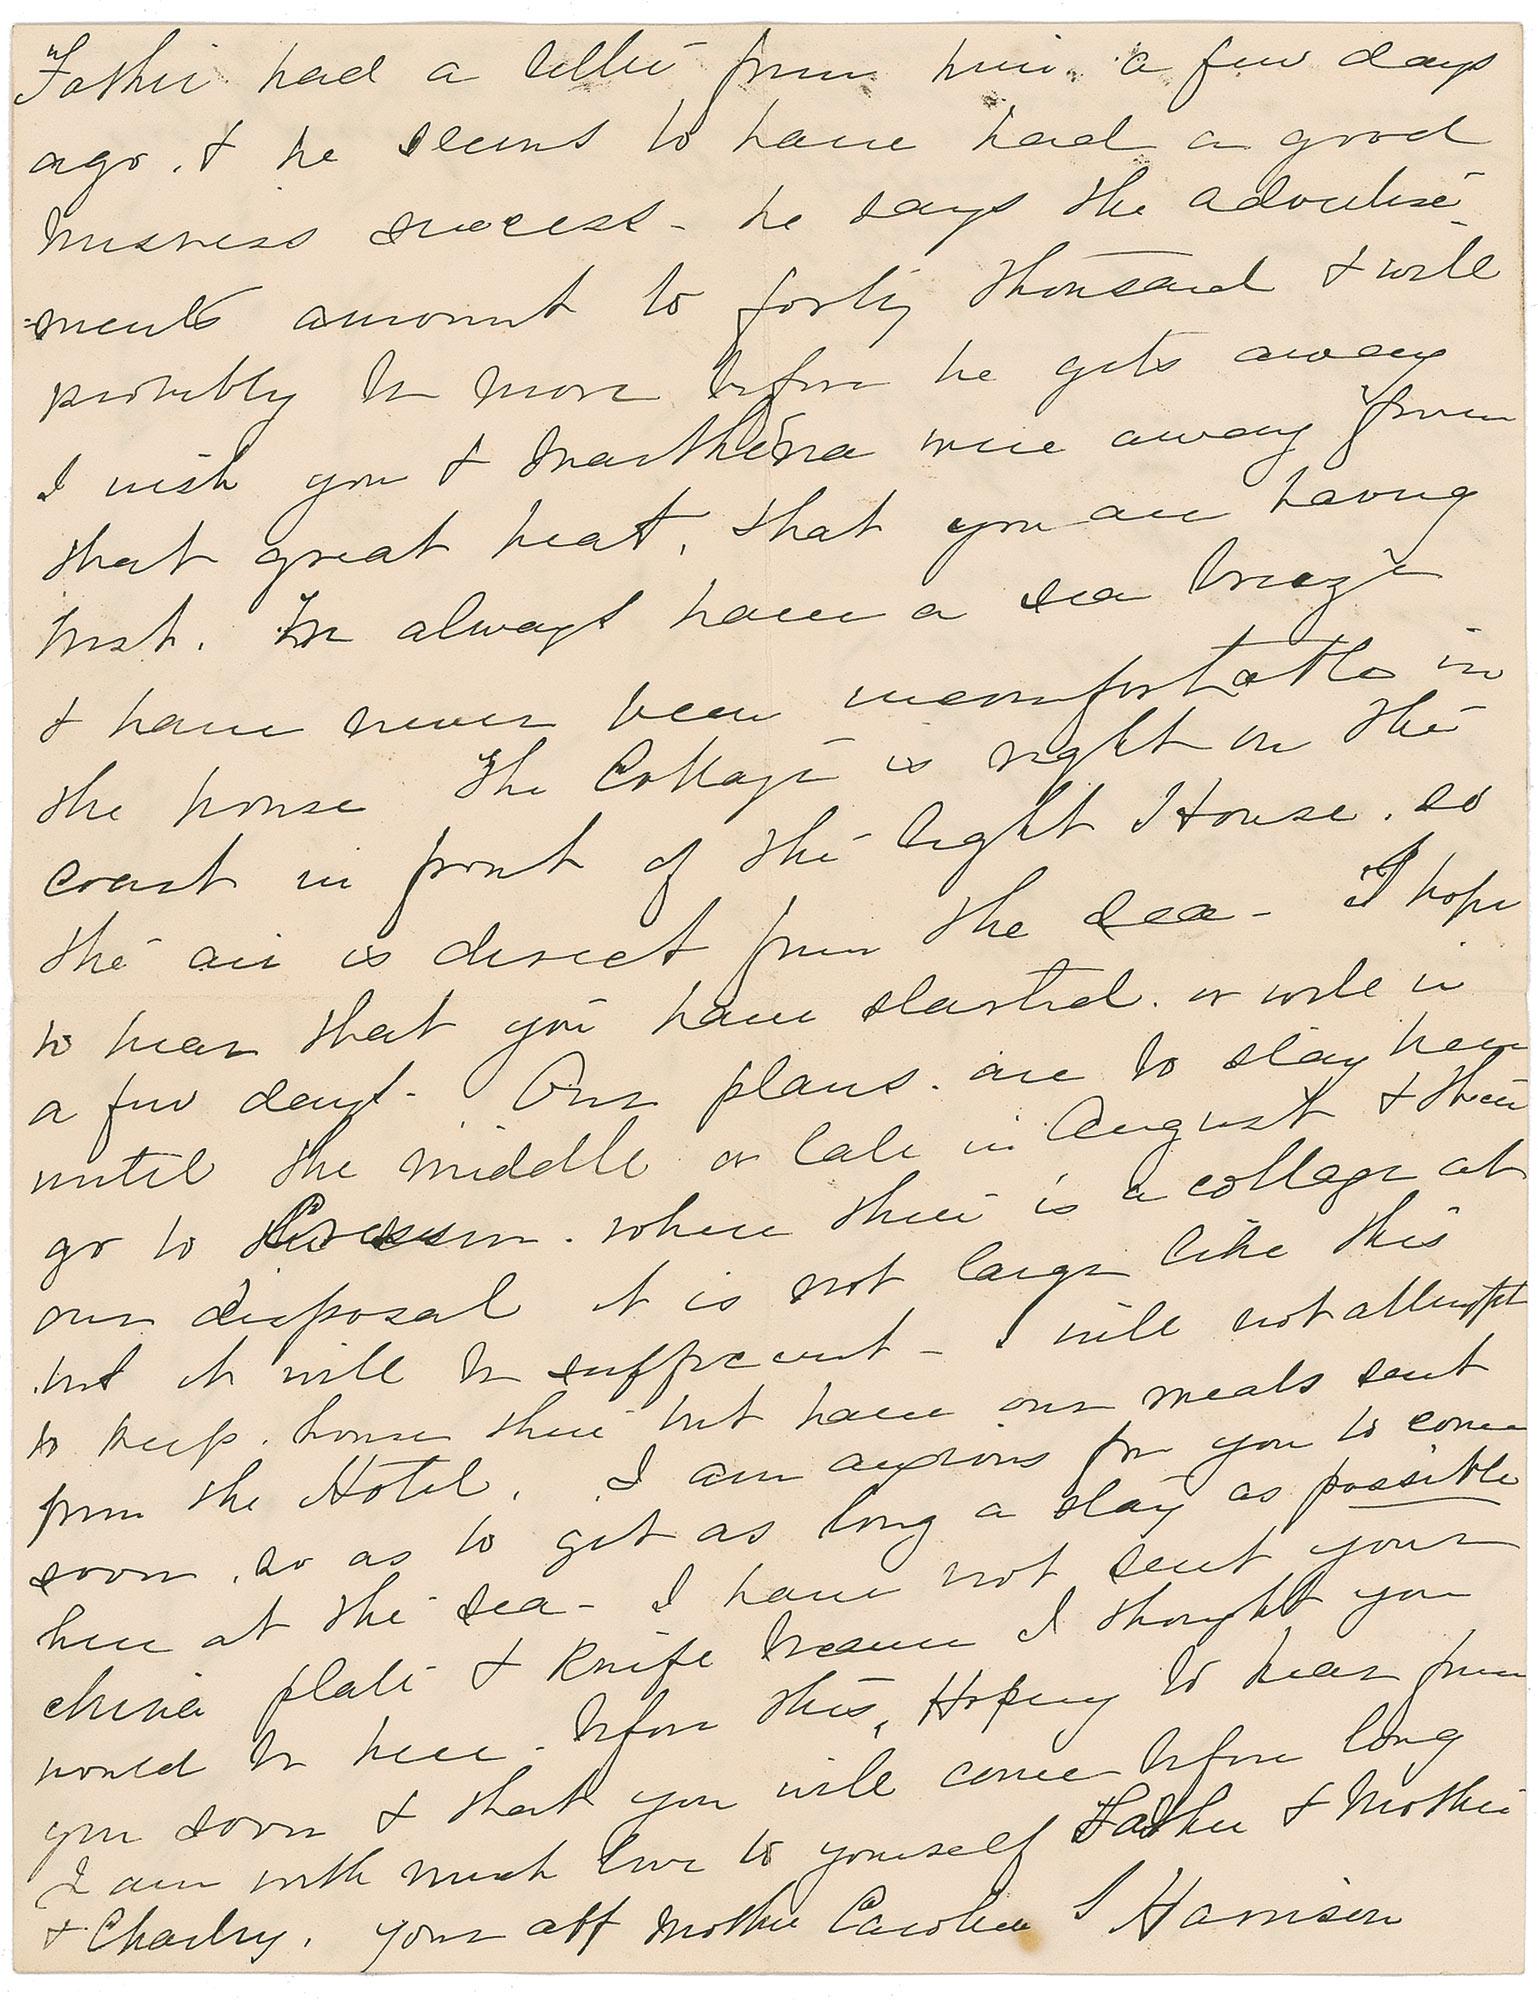 Father had a letter from him a few days
ago. & he seems to have had a good
business success - he says the advertise-
=ments amount to forty thousand & will
probably be more before he gets away
I wish you & Marthena were away from
that great heat, that you are having
most. We always have a sea breeze
& have never been uncomfortable in
the house The Cottage is right on the
coast in front of the Light House. so
the air is direct from the sea - I hope
to hear that you have started. or will in
a few days. Our plans. are to stay here
until the middle or late in August & then
go to Cresson. where there is a cottage at
our disposal it is not large like this
but it will be sufficient - I will not attempt
to keep. house there but have our meals sent
from the Hotel. I am anxious for you to come
soon. so as to get as long a stay as possible
here at the sea - I have not sent your
china plate & knife because I thought you
would be here - before this, Hoping to hear from
you soon & that you will come before long
I am with much love to yourself Father & Mother
& Charley. your aff Mother Caroline S Harrison